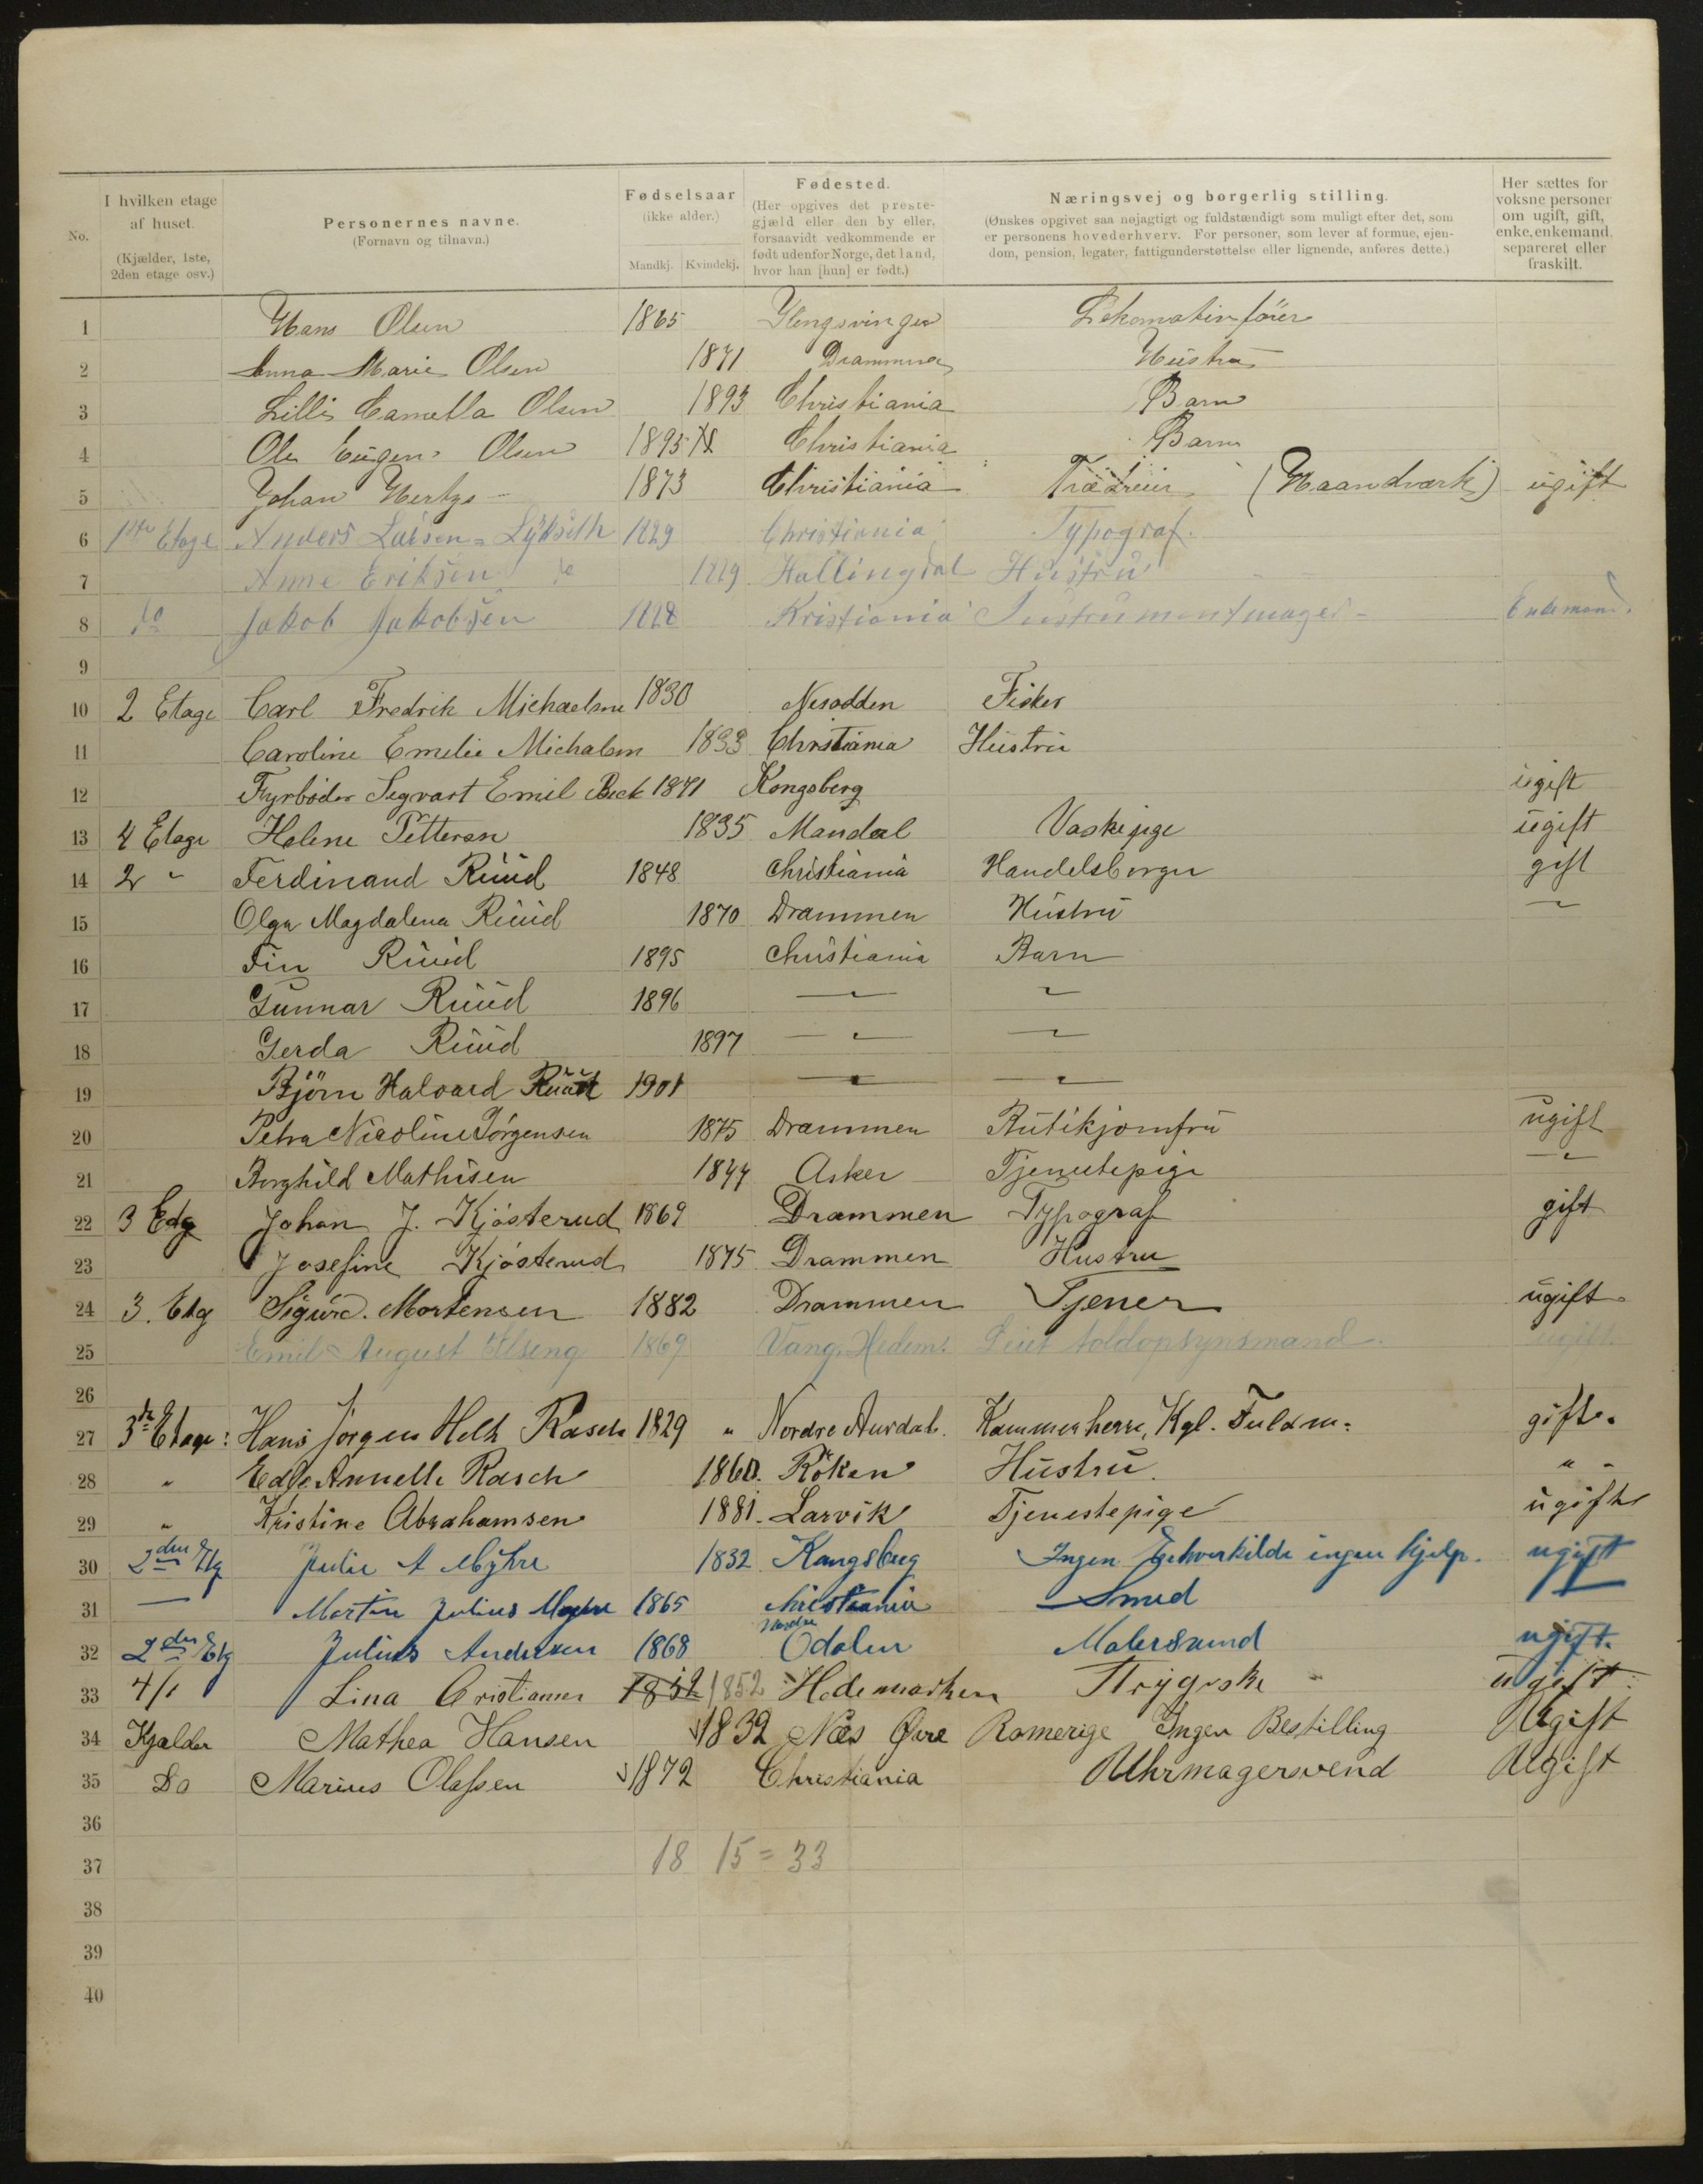 No.
I hvilken etage af huset. (Kjælder, 1ste, 2den etage osv.)
Personernes navne. (Fornavn og tilnavn.)
Fødselsaar (ikke alder.) Mandkj. Kvindekj.
Fødested. (Her opgives det prestegjæld eller den by eller, forsaavidt vedkommende er født udenfor Norge, det land, hvor han [hun] er født.)
Næringsvej og borgerlig stilling. (Ønskes opgivet saa nøjagtigt og fuldstændigt som muligt efter det, som er personens hovederhverv. For personer, som lever af formue, ejendom, pension, legater, fattigunderstøttelse eller lignende, anføres dette.)
Her sættes for voksne personer om ugift, gift, enke, enkemand, separeret eller fraskilt.
1 Hans Olsen 1865 Kengsvinger Lokomativföier
2 Anna Marie Olsen 1871 Drammen Hustru
3 Lilli Camella Olsen 1893 Christiania Barn
4 Ole Eugen Olsen 1895 Christiania Barn
5 Johan Hertzs 1873 Christiania Trædreier (Haandværk) ugift
6 1ste Etage Anders Larsen Lyksæth 1829 Christiania Typograf.
7 Anne Eriksen do 1829 Hallingdal Hustru
8 do Jakob Jakobsen 1828 Kristiania Instrumentmager Enkemand.
9
10 2 Etage Carl Fredrik Michaelsen 1830 Nesodden Fisker
11 Caroline Emelie Michalsen 1833 Christiania Hustru
12 Fyrbøder Segvart Emil Beck 1871 Kongsberg ugift
13 4 Etage Helene Pettersen 1835 Mandal Vaskepige ugift
14 2 " Ferdinand Ruud 1848 Christiania Handelsborger gift
15 Olga Magdalena Ruud 1870 Drammen Hustru "
16 Fin Ruud 1895 Christiania Barn
17 Gunnar Ruud 1896 " "
18 Gerda Ruud 1897 " "
19 Björn Halvard Ruud 1901 " "
20 Petra Nicoline Jörgensen 1875 Drammen Butikjomfru ugift
21 Borghild Mathisen 1877 Asker Tjenestepige "
22 3 Etg Johan J. Kjösterud 1869 Drammen Typograf gift
23 Josefine Kjösterud 1875 Drammen Hustru
24 3. Etg Sigurd. Mortensen 1882 Drammen Tjener ugift
25 Emil August Elseng 1869 Vang. Hedem. toldopsynsmand. ugift.
26
27 3die Etage: Hans Jörgen Rasch 1829 " Nordre Aurdal. Kammerherre, Kgl. Fuldm: gift.
28 " Rasch 1860. Röken Hustru. " "
29 " Kristine Abrahamsen 1881. Larvik Tjenestepige ugift
30 2den Etg Julie A Myhre 1832 Kongsberg Ingen ingen hjelp. ugift
31 — Martin Julius Myhre 1865 Christiania Smed
32 2den Etg Julius Andersen 1868 Nordre Odalen Malersvend ugift.
33 4/1 Lina Cristiansen 1852 1852 Hedemarken Strygerske ugift:
34 Kjælder Mathea Hansen 1832 Næs Øvre Romerige Ingen Bestilling Ugift
35 Do Marius Olafsen 1872 Christiania Uhrmagersvend Ugift
36
37 18 15 = 33
38
39
40